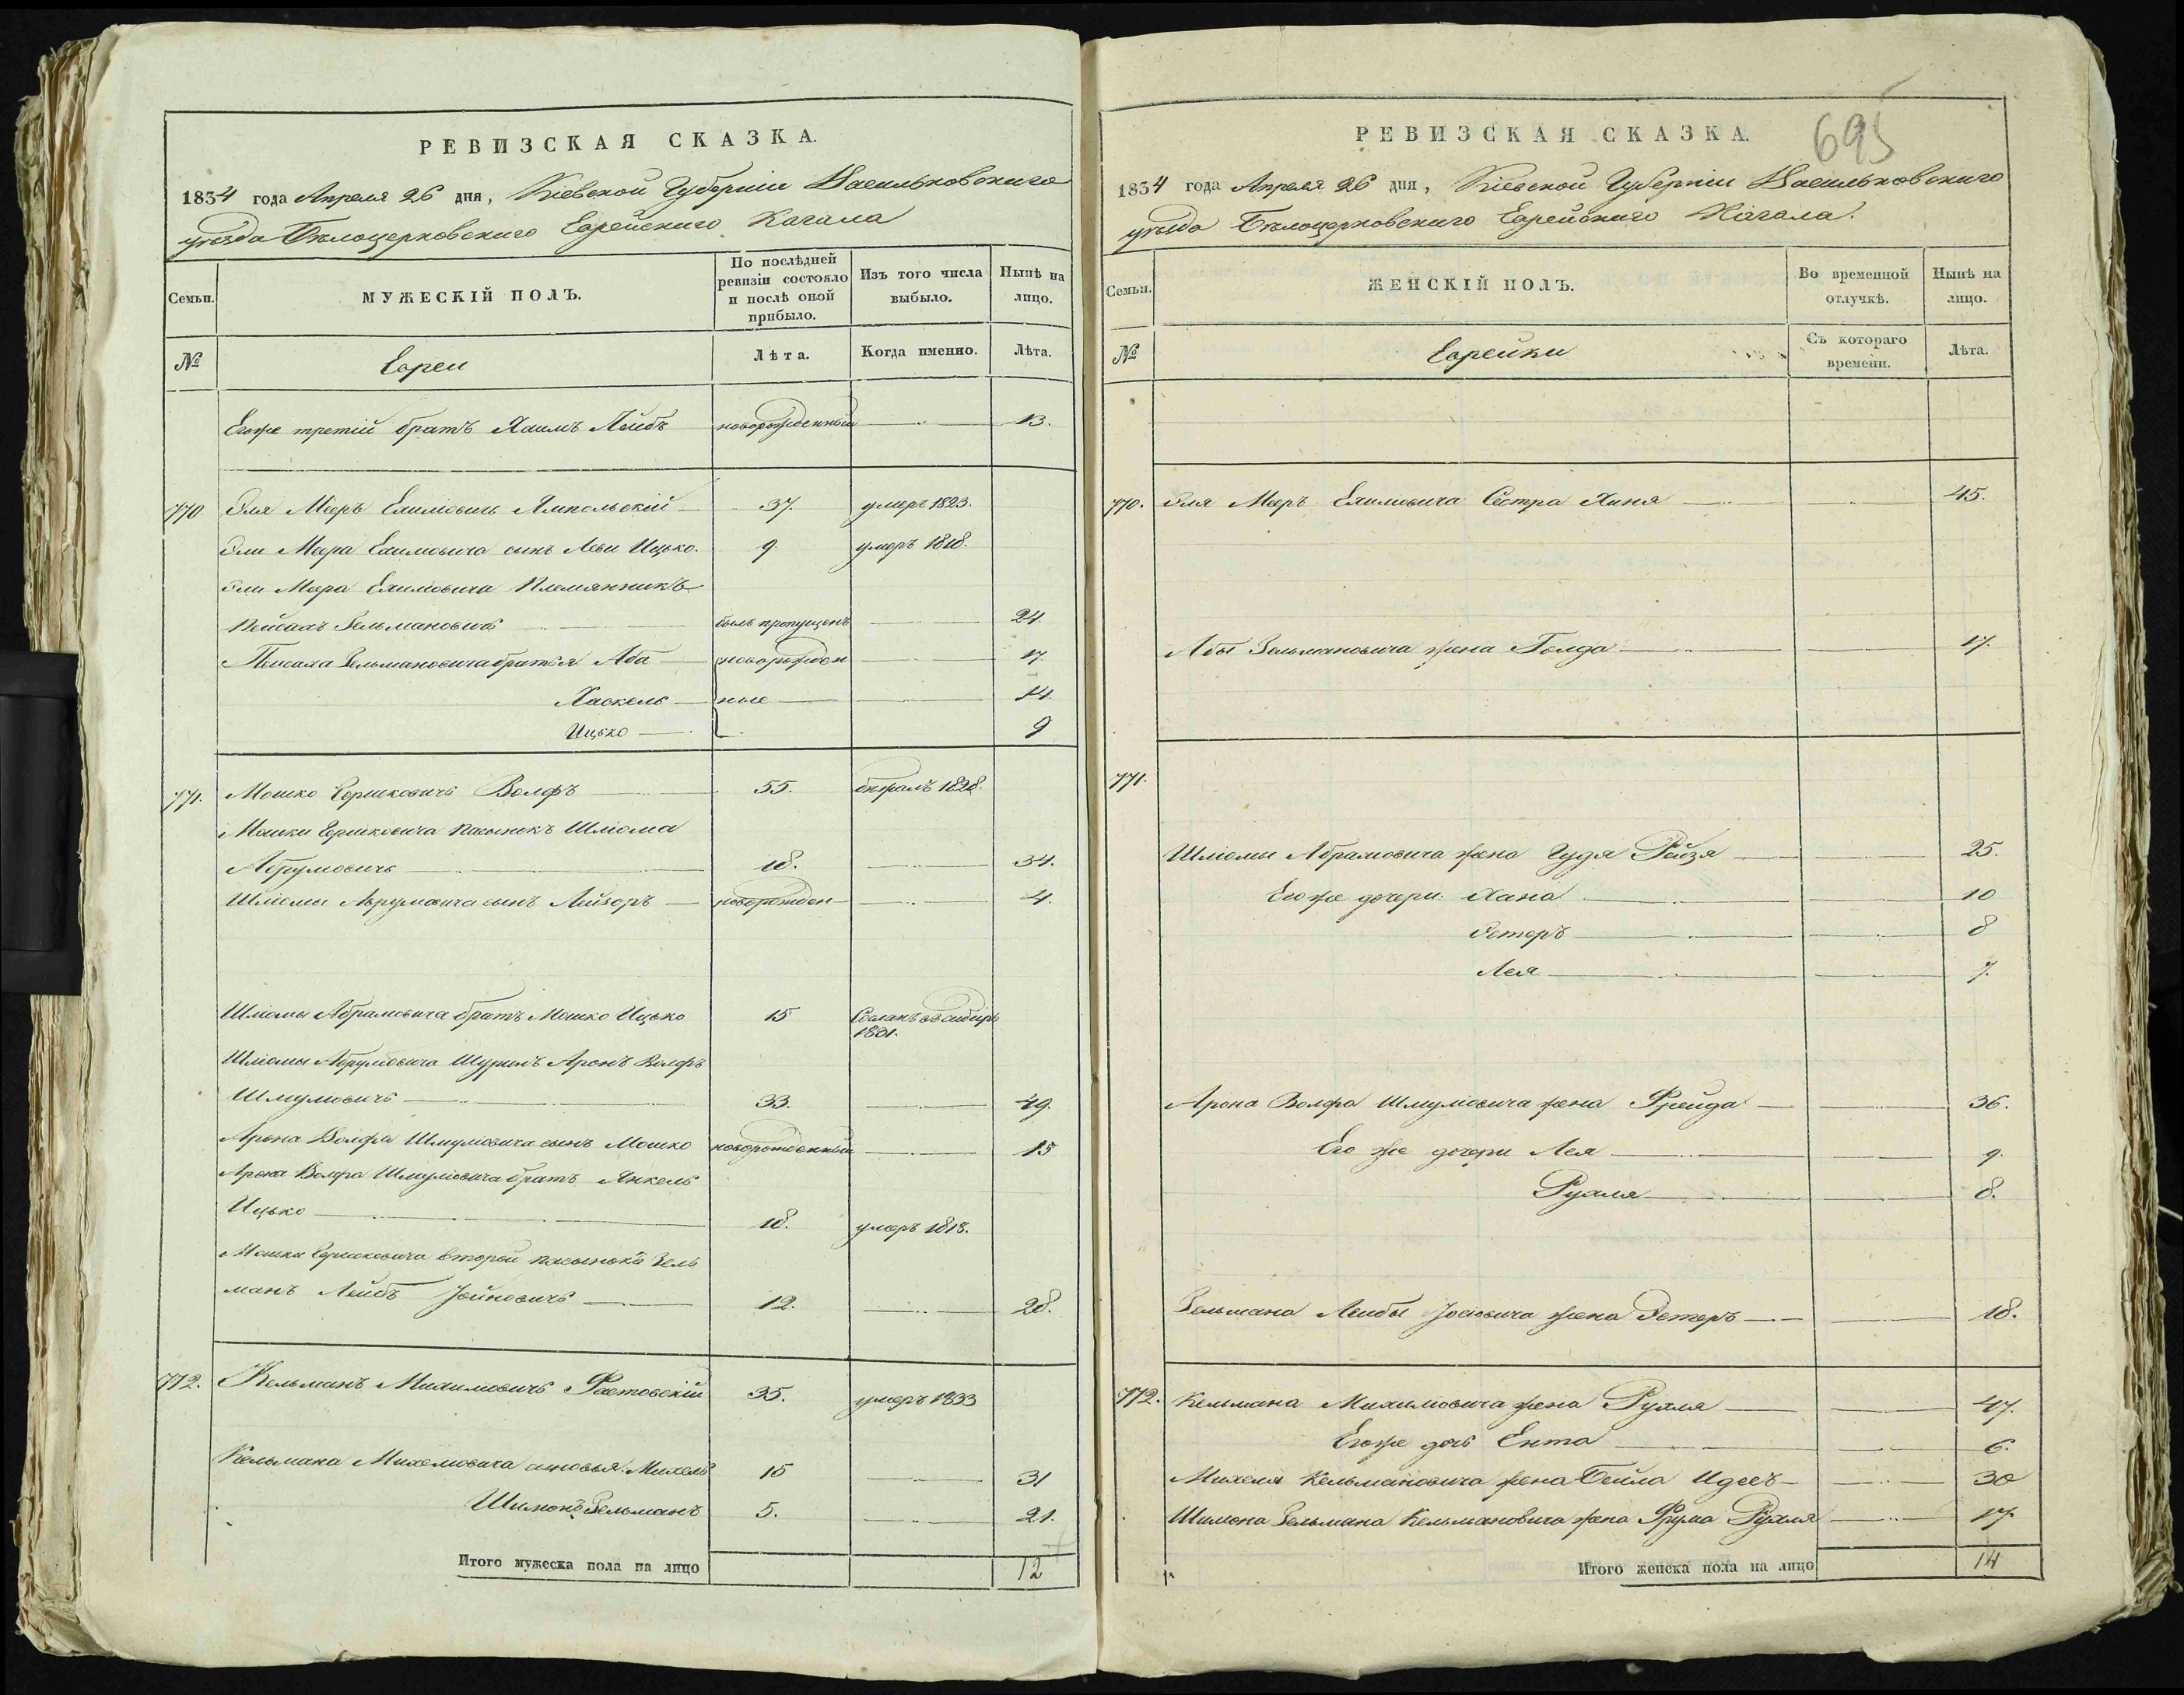 РЕВИЗСКАЯ СКАЗКА.
1834 года Апреля 26 дня, Кіевской Губерніи Васильковскаго
уѣзда Бѣлоцерковскаго Еврейскаго Кагала
Семьи.
МУЖЕСКІЙ ПОЛЪ.
По послѣдней ревизіи состояло и послѣ оной прибыло.
Изъ того числа выбыло.
Нынѣ на лицо.
№
Евреи
Лѣта.
Когда именно.
Лѣта.
Егоже третій братъ Хаимъ Лейбъ новорожденный 13.
770 Эля Мееръ Ехимовичъ Ямпольскій 37. умеръ 1823.
Эли Меера Ехимовича сынъ Леви Ицько. 9. умеръ 1818.
Эли Меера Ехимовича Племянникъ
Пейсахъ Зельмановичъ былъ пропущенъ 24.
Пейсаха Зельмановича братья Аба новорожден 17.
Хаскель ные 14.
Ицько 9
771. Мошко Гершковичъ Волфъ 55. бѣжалъ 1828.
Мошки Гершковича пасынокъ Шліома
Абрумовичъ 18. 34.
Шліомы Аврумовича сынъ Лейзоръ новорожден 4.
Шліомы Абрамовича братъ Мошко Ицько 15 Сосланъ въ сибирь
1831.
Шліомы Абрумовича Шуринъ Аронъ Волфъ
Шмуліовичъ 33. 49.
Арона Волфа Шмуліовича сынъ Мошко новорожденный 15
Арона Волфа Шмуліовича братъ Янкель
Ицько 18. умеръ 1818.
Мошки Гершковича второй пасынокъ Зель
манъ Лейбъ Іойновичъ 12. 28.
772. Кельманъ Михимовичъ Фастовскій 35. умеръ 1833
Кельмана Михелиовича сыновья: Михель 15 31
Шимонъ Зельманъ 5. 21.
Итого мужеска пола на лицо 12
695
РЕВИЗСКАЯ СКАЗКА.
1834 года Апреля 26 дня, Кіевской Губерніи Васильковскаго
уѣзда Бѣлоцерковскаго Еврейскаго Кагала.
Семьи.
ЖЕНСКІЙ ПОЛЪ.
Во временной отлучкѣ.
Нынѣ на лицо.
№
Еврейки
Съ котораго времени.
Лѣта.
770. Эля Меръ Ехимовича Сестра Хиня 45.
Абы Зельмановича жена Голда 17.
771.
Шліомы Абрамовича жена Гудя Рейзя 25.
Его же дочери Хана 10
Эстеръ 8
Лея 7.
Арона Волфа Шмуліовича жена Фрейда 36.
Его же дочери Лея 9.
Рухля 8.
Зельмана Лейбы Іосіовича жена Эстеръ 18.
772. Кельмана Михимовича жена Рухля 47.
Егоже дочь Ента 6.
Михеля Кельмановича жена Бейла Идесъ 30
Шимона Зельмана Кельмановича жена Фрума Рухля 17.
Итого женска пола на лицо 14